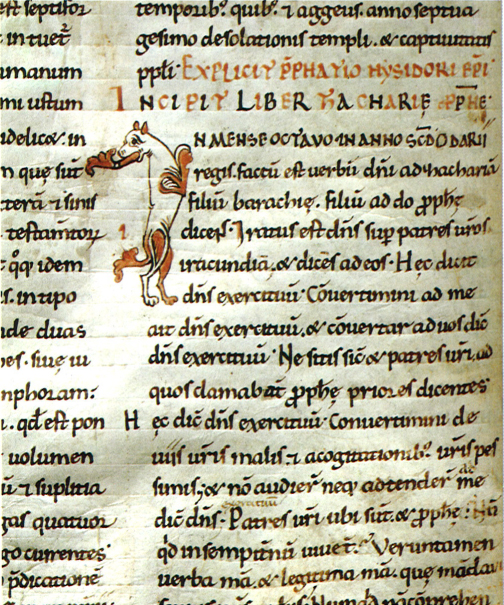 est septifor
in tuet᷒
umanum
mi iustum
idelicet in
n quę sut̄
terā ⁊ si in is
testam̄tor
qͦq idem
s. in tipo
nde duas
pes. siue ui
nphoram:
. qd̄ est pon
uolumen
ū ⁊ suplitia
gas quatuor
go currentes
p̄dicationē
temporib; quib; ⁊ aggeus. anno septua
gesimo desolationis templi. & captiuitatis
pp̄li. EXPLICIT P̄PHATIO HYSIDORI EP̄I
INCIPIT LIBER ZACHARIĘ P̄PHĘ:
IN MENSE OCTAVO IN ANNO SCD̄O DARII
regis. factū est uerbū dn̄i ad zachariā
filiū barachię. filiū addo p̄phę
dicens. Iratus est dn̄s sup̄ patres ur̄os
iracundiā. & dices ad eos. Hęc dicit
dn̄s exercituū. Cōuertimini ad me
ait dn̄s exercituū. & cōuertar ad uos dic̄
dn̄s exercituū. Ne sitis sic̄ & patres ur̄i. ad
quos clamabat̄ p̄phę priores dicentes
Hęc dic̄ dn̄s exercituū. Conuertimini de
uiis ur̄is malis. ⁊ a cogitationib; ur̄is pes
simis; & nō audier̄ neq; adtender̄ ad me
dic̄ dn̄s. Patres ur̄i ubi sut̄. & p̄phę. Nū
qd̄ in sempit̄nū uiuet̄. Veruntamen
uerba mā. & legitima mā. quę mandaui